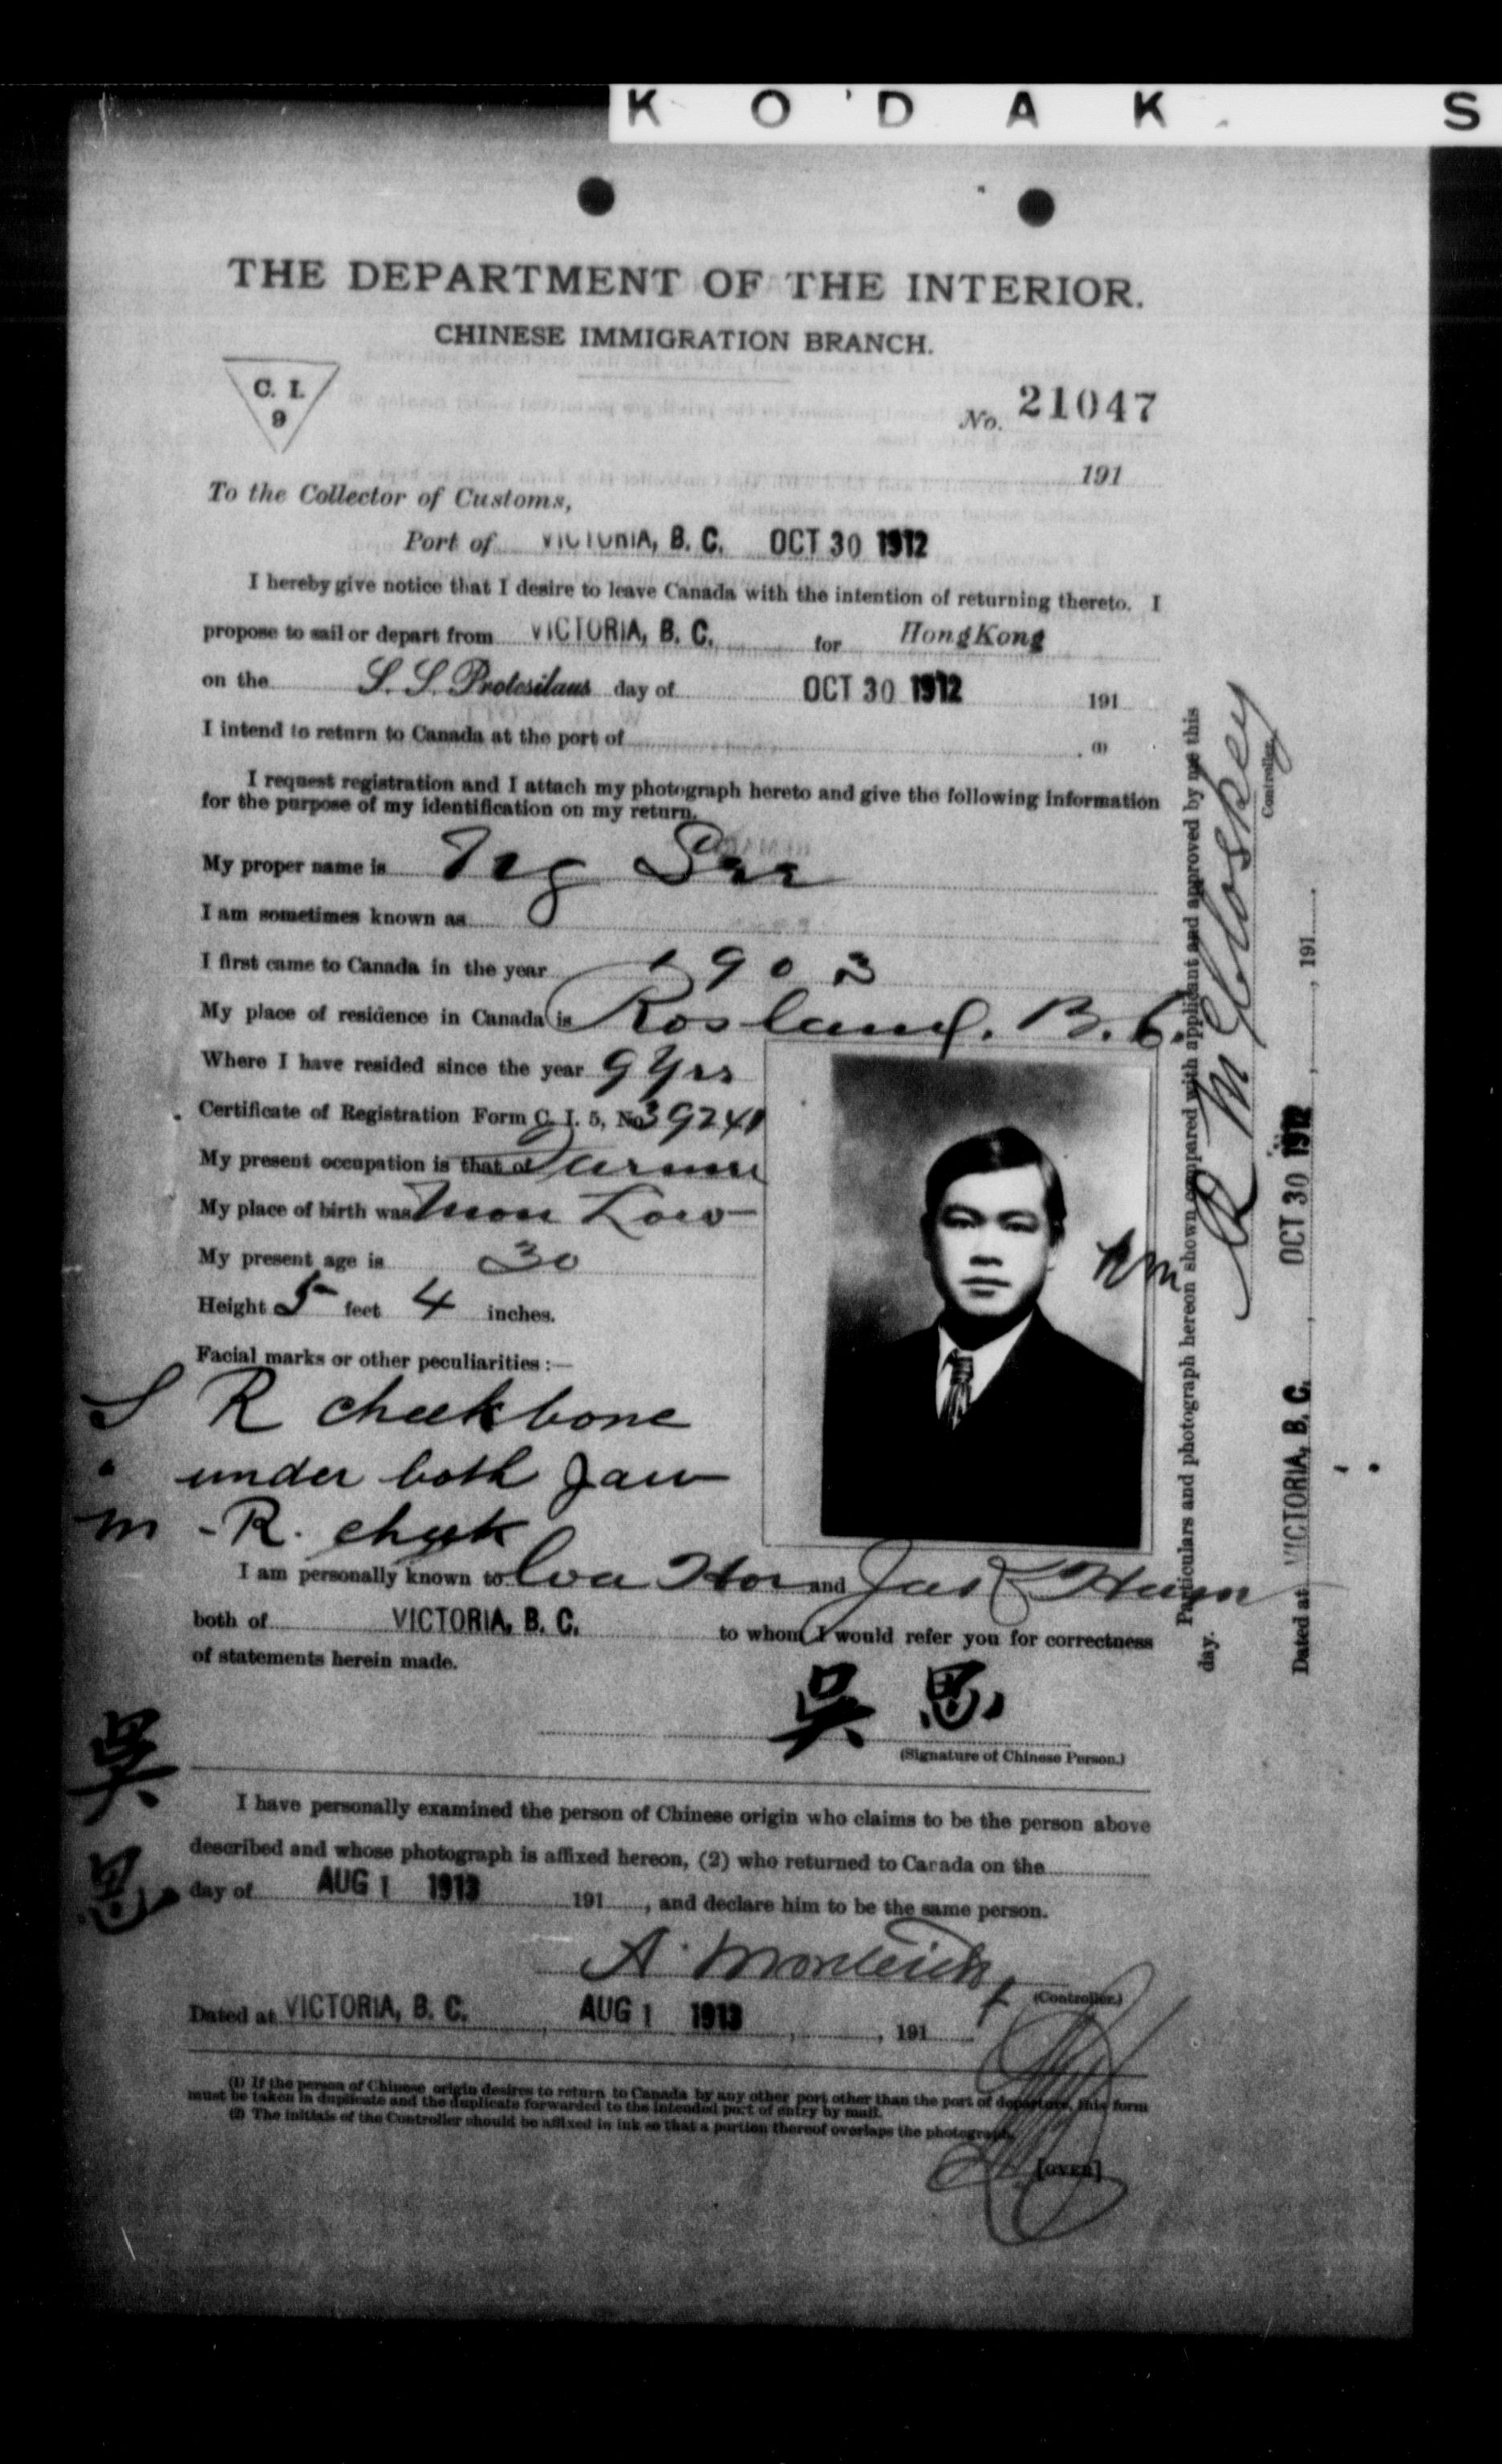 K O D A K S
THE DEPARTMENT OF THE INTERIOR.
CHINESE IMMIGRATION BRANCH.
C. I.
9
No. 21047
191
To the Collector of Customs,
Port of VICTORIA, B. C. OCT 30 1912
I hereby give notice that I desire to leave Canada with the intention of returning thereto. I
propose to sail or depart from VICTORIA, B. C. for HongKong
on the S. S. Protesilaus day of OCT 30 1912 191
I intend to return to Canada at the port of (1)
I request registration and I attach my photograph hereto and give the following information
for the purpose of my identification on my return.
My proper name is Ng
I am sometimes known as
I first came to Canada in the year 1903
My place of residence in Canada is Rosland. B.C.
Where I have resided since the year 9 Yrs
Certificate of Registration Form C. I. 5, No 39241
My present occupation is that of
My place of birth was Low
My present age is 30
Height 5 feet 4 inches.
Facial marks or other peculiarities :—
S R cheekbone
under both Jaw
m - R. cheek
I am personally known to and
both of VICTORIA, B. C. to whom I would refer you for correctness
of statements herein made.
吳 思
(Signature of Chinese Person.)
吳思
I have personally examined the person of Chinese origin who claims to be the person above
described and whose photograph is affixed hereon, (2) who returned to Canada on the
day of AUG 1 1913 191 , and declare him to be the same person.
A. Monteith
(Controller.)
Dated at VICTORIA, B. C. , AUG 1 1913 , , 191
(1) If the person of Chinese origin desires to return to Canada by any other port other than the port of departure, this form
must be taken in duplicate and the duplicate forwarded to the intended port of entry by mail.
(2) The initials of the Controller should be affixed in ink so that a portion thereof overlaps the photograph.
[OVER]
Particulars and photograph hereon shown compared with applicant and approved by me this
day.
Controller.
Dated at VICTORIA, B. C. , OCT 30 1912 , 191